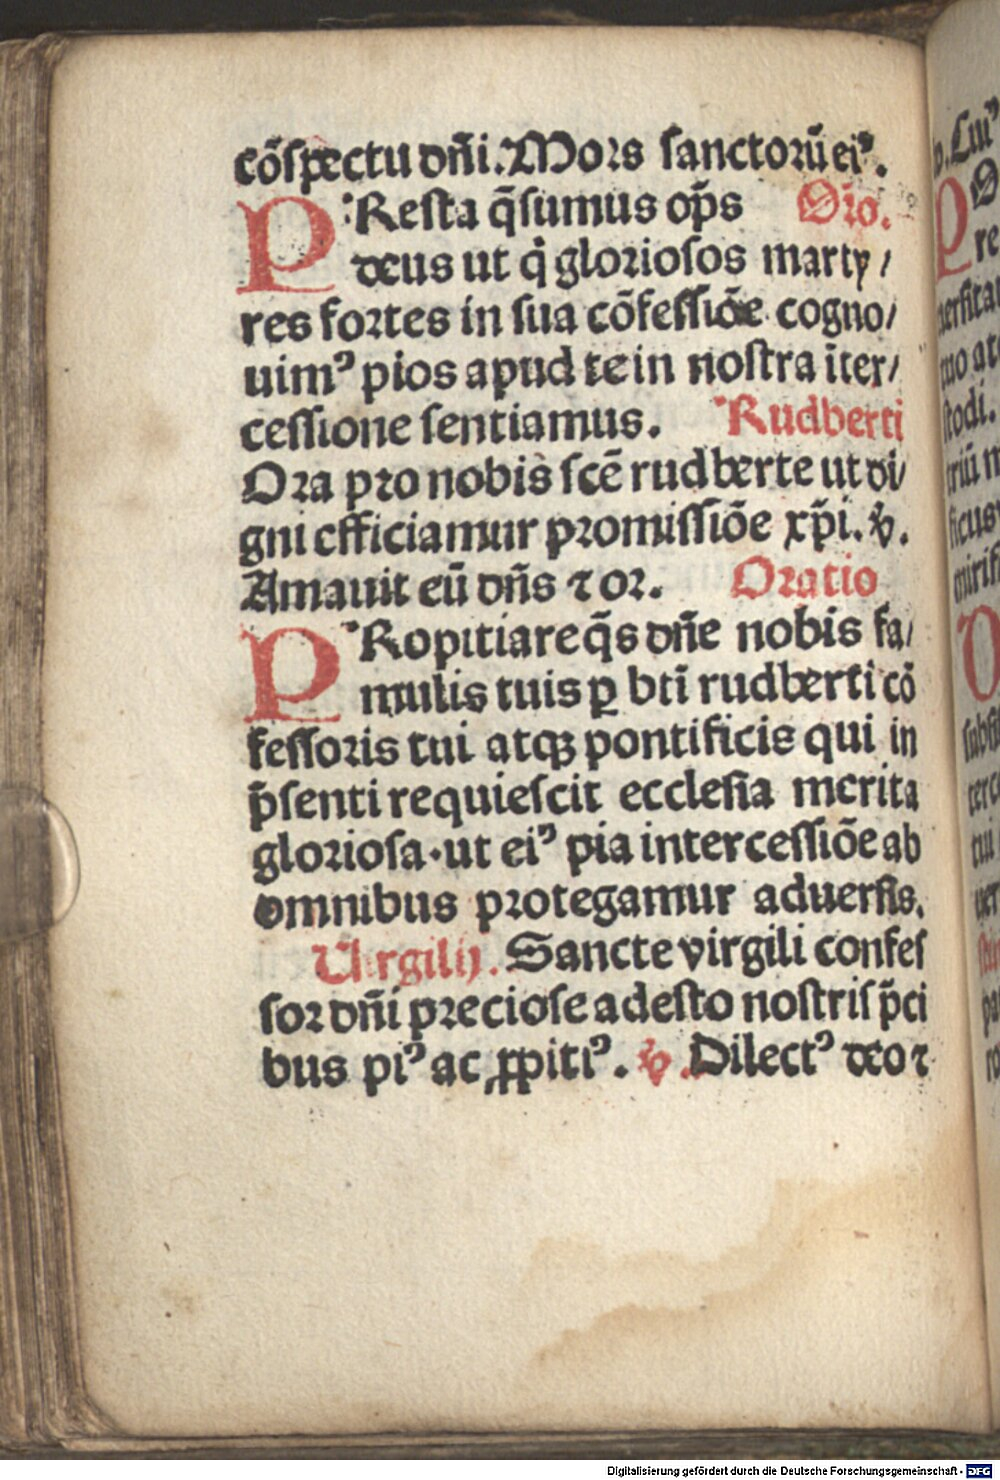 cõſpectu dñi. Mors ſanctorũ ei⁹.
PReſta q̃ſumus op̃s Or̃o.
deus ut q̇ glorioſos marty/
res fortes in ſua cõfeſſiõe cogno/
uim⁹ pios apud te in noſtra ĩter/
ceſſione ſentiamus. Rudberti
Ora pro nobis ſcẽ rudberte ut di/
gni efficiamur promiſſiõe xp̃i. ℣.
Amauit eũ dñs ⁊ or. Oratio
PRopitiare q̃s dñe nobis fa/
mulis tuis ꝑ bti̅ rudberti cõ
feſſoris tui atqꝫ pontificis qui in
p̃ſenti requieſcit eccleſia merita
glorioſa·ut ei⁹ pia interceſſiõe ab
omnibus protegamur aduerſis.
Uirgilij. Sancte virgili confeſ
ſor dñi precioſe adeſto noſtriſ p̃ci
bus pi⁹ ac ꝓpiti⁹. ℣. Dilect⁹ deo ⁊
Digitalisierung gefördert durch die Deutsche Forschungsgemeinschaft - DFG